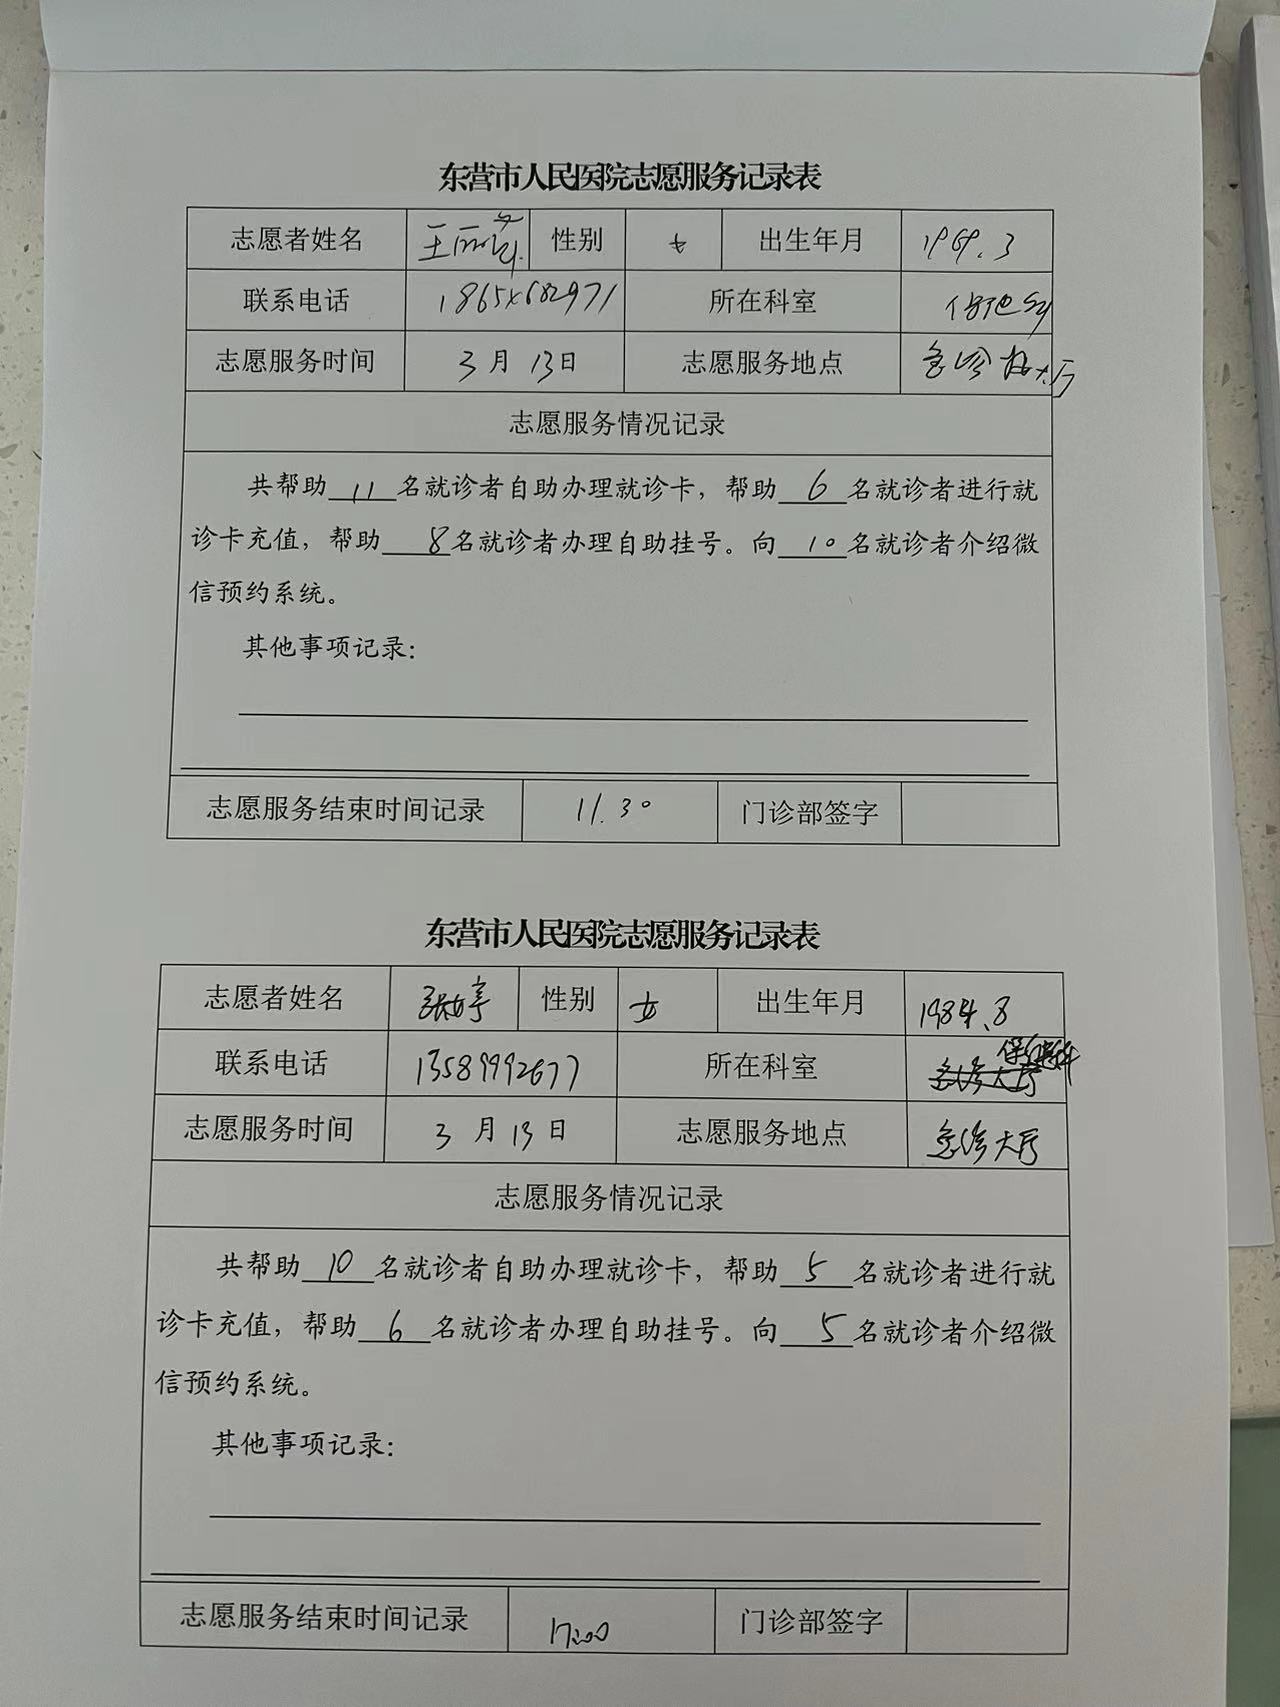 东营市人民医院志愿服务记录表
志愿者姓名 王 性别 女 出生年月 1969.3
联系电话 所在科室
志愿服务时间 3月13日 志愿服务地点 急诊 大厅
志愿服务情况记录
共帮助 11 名就诊者自助办理就诊卡，帮助 6 名就诊者进行就
诊卡充值，帮助 8 名就诊者办理自助挂号。向 10 名就诊者介绍微
信预约系统。
其他事项记录：
志愿服务结束时间记录 11.30 门诊部签字
东营市人民医院志愿服务记录表
志愿者姓名 张婷 性别 女 出生年月 1984.8
联系电话 13589992677 所在科室 急诊大厅
志愿服务时间 3月13日 志愿服务地点 急诊大厅
志愿服务情况记录
共帮助 10 名就诊者自助办理就诊卡，帮助 5 名就诊者进行就
诊卡充值，帮助 6 名就诊者办理自助挂号。向 5 名就诊者介绍微
信预约系统。
其他事项记录：
志愿服务结束时间记录 17:00 门诊部签字